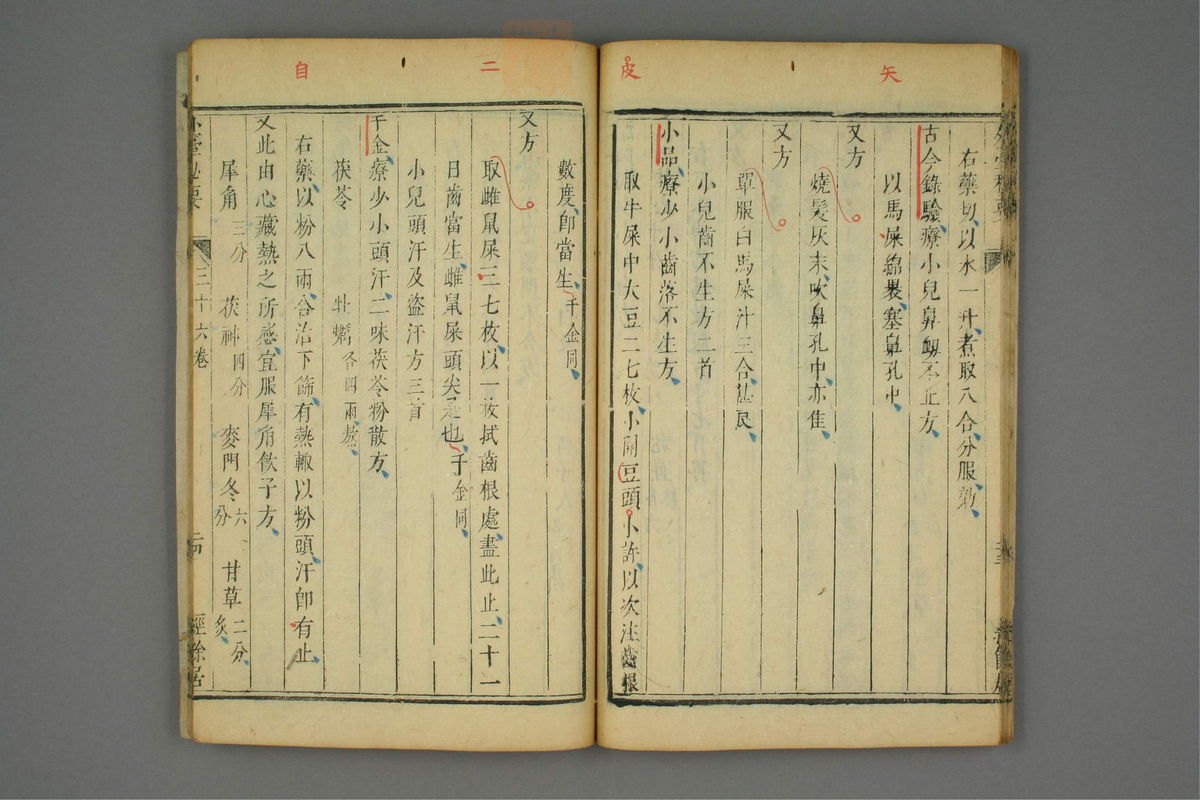 矢
皮
右藥切以水一升煮取八合分服瘥
古今錄驗療小兒鼻衄不止方
以馬屎綿裹塞鼻孔中
又方
燒髮灰末吹鼻孔中亦隹
又方
單服白馬屎汁三合甚良
小兒齒不生方二首
小品療少小齒落不生方
取牛屎中大豆二七枚小開豆頭小許以次注齒根
二
自
數度卽當生千金同
又方
取雌鼠屎三七枚以一枚拭齒根處盡此止二十一
日齒當生雌鼠屎頭尖是也千金同
小兒頭汗及盜汗方三首
千金療少小頭汗二味茯苓粉散方
茯苓 牡蠣各四兩熬
右藥以粉八兩合治下篩有熱輙以粉頭汗卽有止
又此由心藏熱之所感宜服犀角飲子方
犀角三分 茯神四分 麥門冬六分 甘草二分炙
三十六卷 經餘居